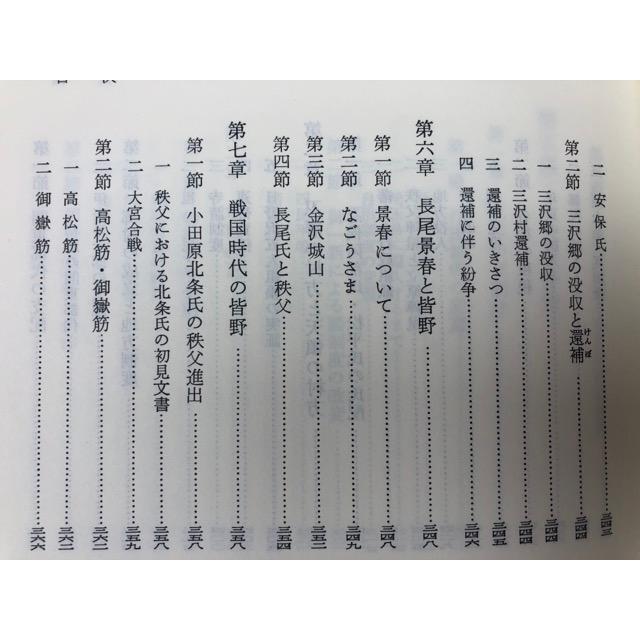 目次
二 安保氏……三四三
第二節 三沢郷の没収と還補……三四四
けんぽ
一 三沢郷の没収……三四四
二 三沢村還補……三四四
三 還補のいきさつ……三四五
四 還補に伴う紛争……三四六
第六章 長尾景春と皆野……三四八
第一節 景春について……三四八
第二節 なごうさま……三四九
第三節 金沢城山……三五二
第四節 長尾氏と秩父……三五四
第七章 戦国時代の皆野……三五八
第一節 小田原北条氏の秩父進出……三五八
一 秩父における北条氏の初見文書……三五八
二 大宮合戦……三五九
第二節 高松筋・御嶽筋……三六二
一 高松筋……三六二
二 御嶽筋……三六六